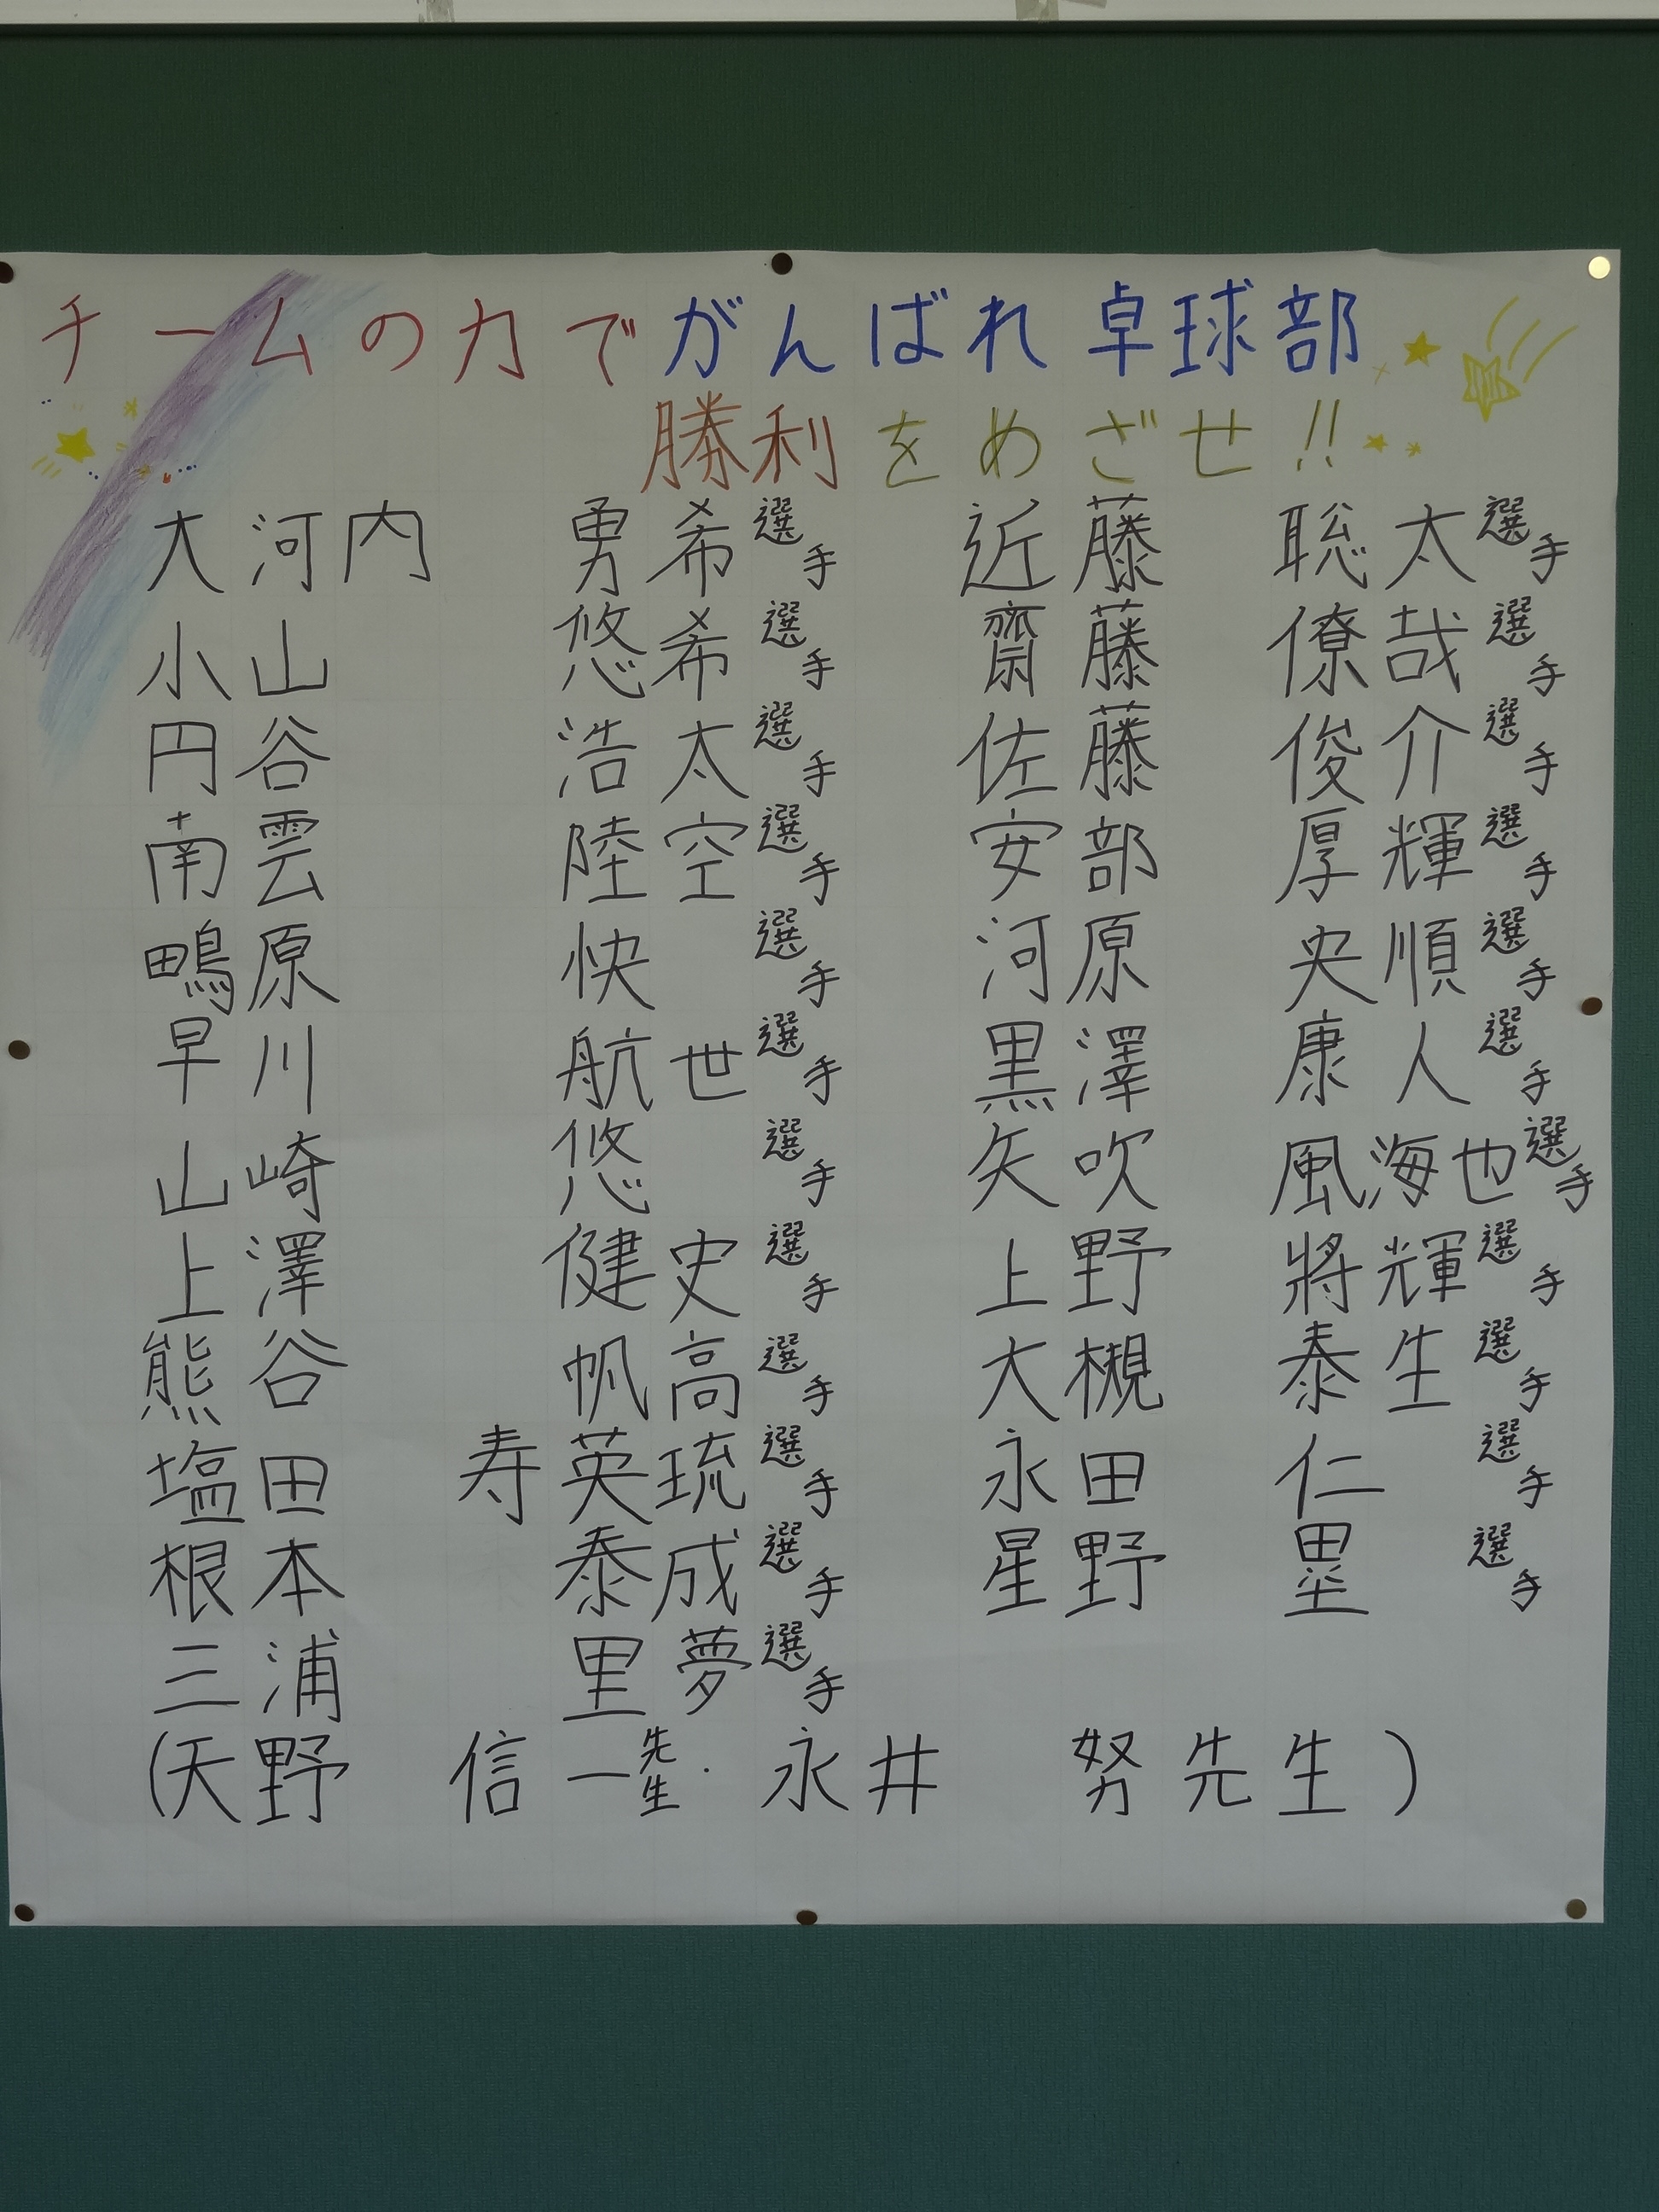 チームの力でがんばれ卓球部
勝利をめざせ!!
大河内 勇希選手 近藤 聡太選手
小山 悠希選手 齋藤 僚哉選手
円谷 浩太選手 佐藤 俊介選手
南雲 陸空選手 安部 厚輝選手
鴫原 快選手 河原 央順選手
早川 航世選手 黒澤 康人選手
山崎 悠選手 矢吹 風海也選手
上澤 健史選手 上野 將輝選手
熊谷 帆高選手 大槻 泰生選手
塩田 寿英琉選手 永田 仁選手
根本 泰成選手 星野 塁選手
三浦 里夢選手
(天野 信一先生・永井 努先生)